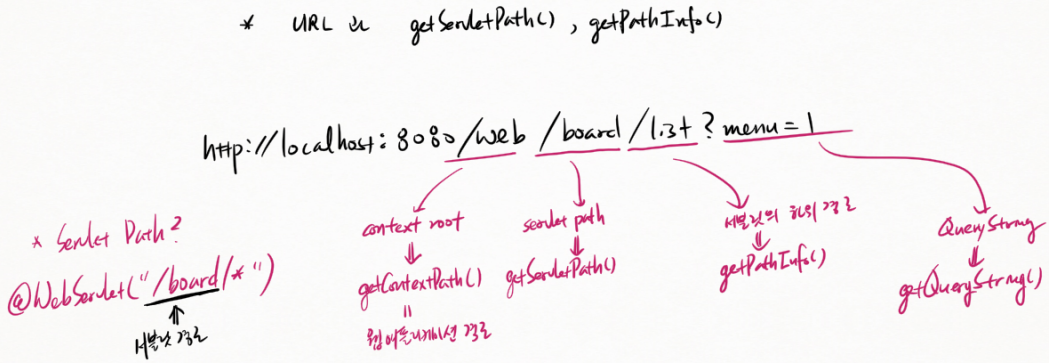 * URL 과 getServletPath(), getPathInfo()
http://localhost:8080/web/board/list?menu=1
context root
getContextPath()
=
웹애플리케이션 경로
servlet path
getServletPath()
서블릿의 하위 경로
getPathInfo()
QueryString
getQueryString()
* Servlet Path?
@WebServlet("/board/*")
서블릿 경로